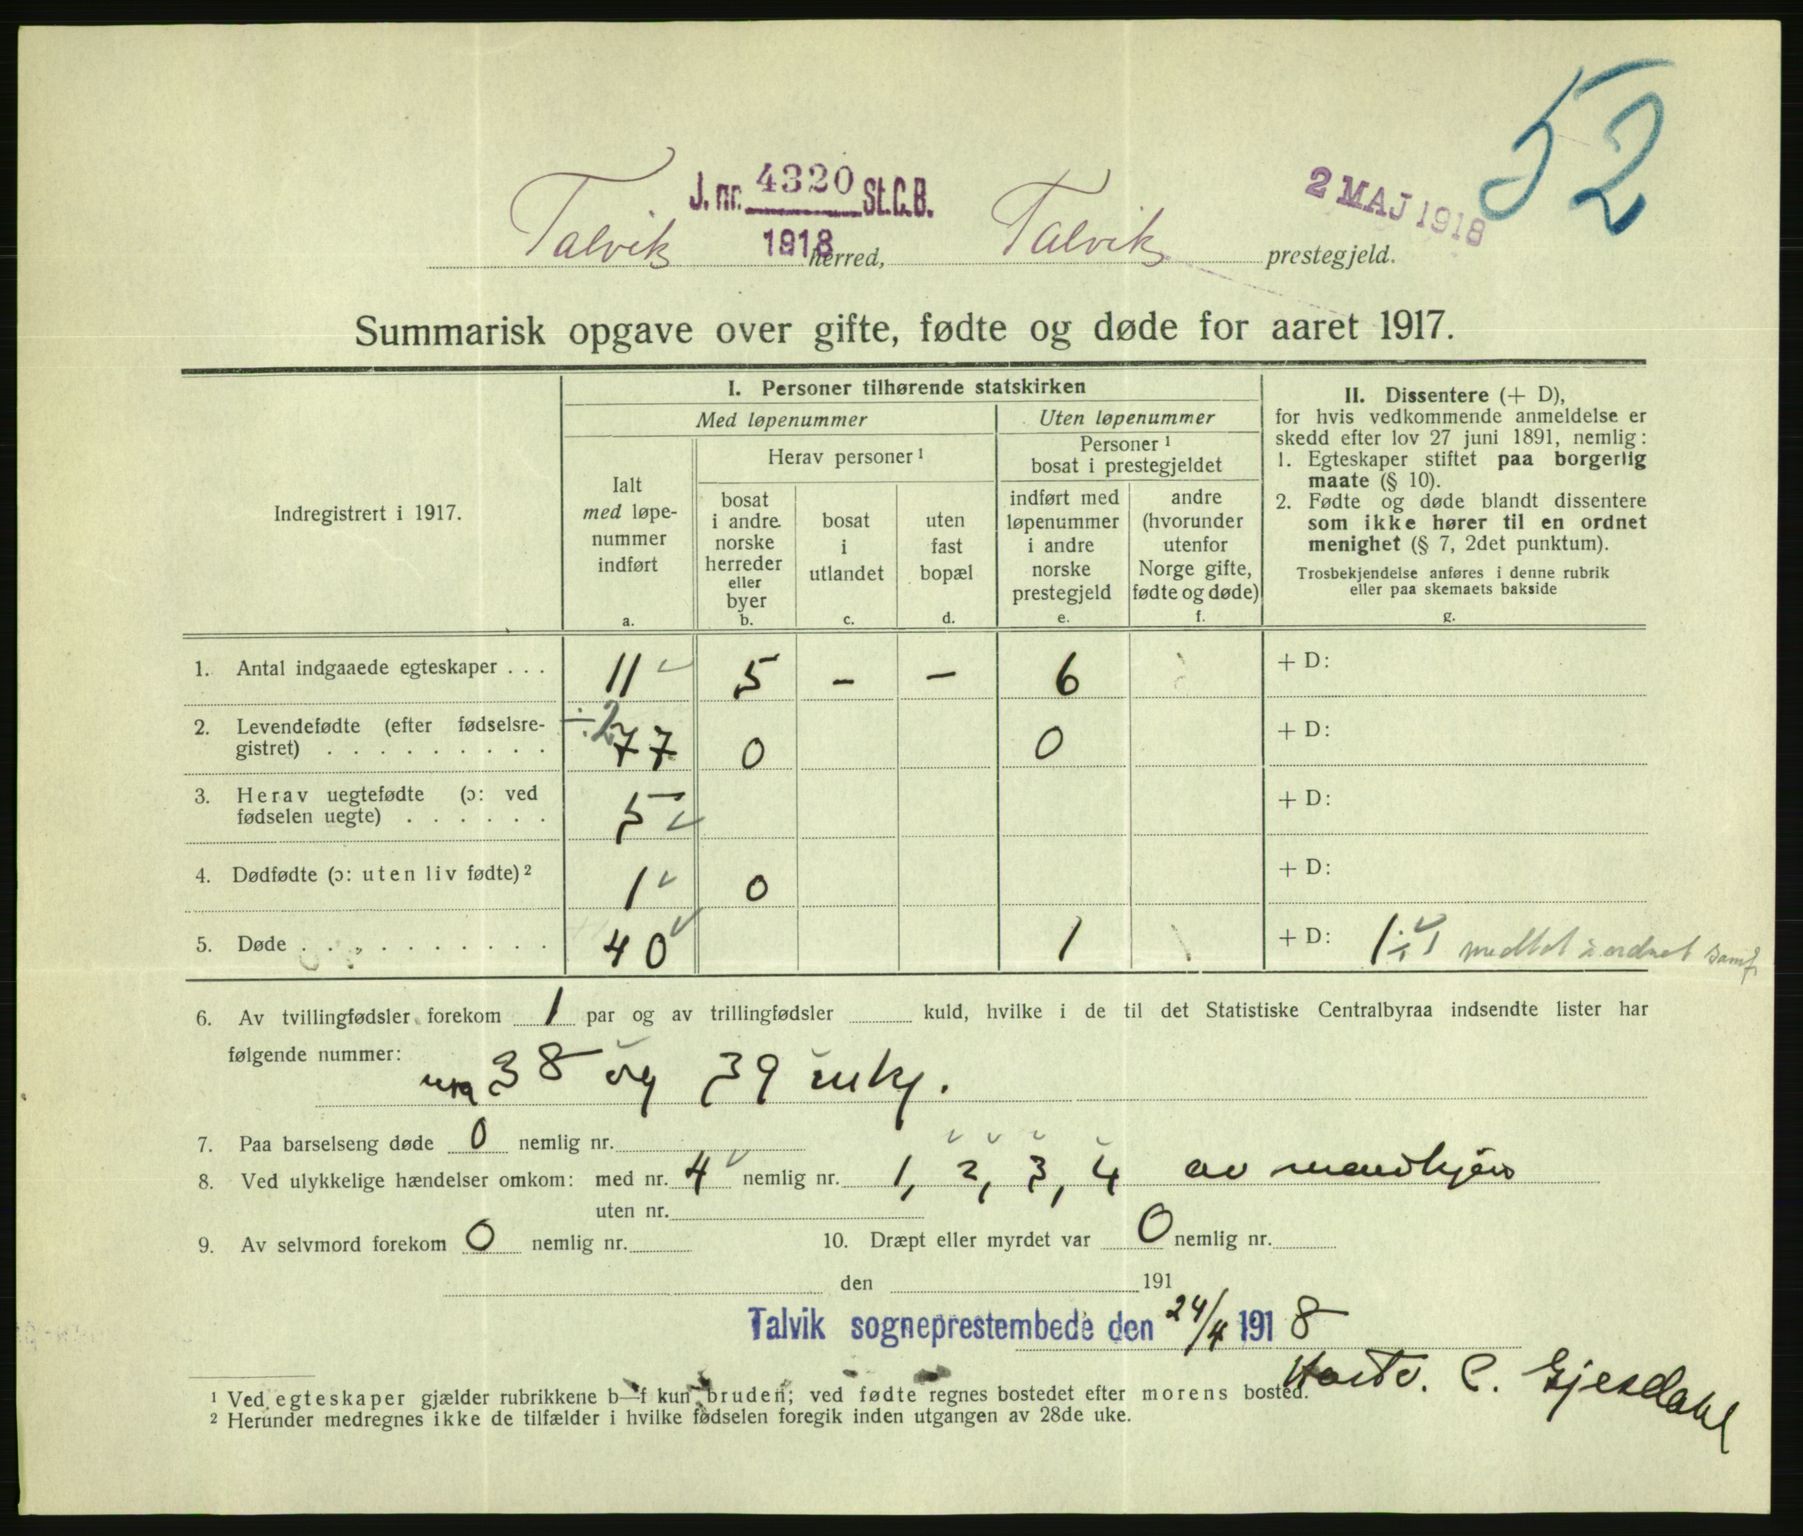 52
2 MAJ 1918
J. nr. 4320 St.C.B.
1918
Talvik herred, Talvik prestegjeld.
Summarisk opgave over gifte, fødte og døde for aaret 1917.
Indregistrert i 1917.
I. Personer tilhørende statskirken
Med løpenummer
Uten løpenummer
Ialt med løpenummer indført
a.
Herav personer ¹
bosat i andre norske herreder eller byer
b.
bosat i utlandet
c.
uten fast bopæl
d.
Personer ¹ bosat i prestegjeldet
indført med løpenummer i andre norske prestegjeld
e.
andre (hvorunder utenfor Norge gifte, fødte og døde)
f.
II. Dissentere (+ D),
for hvis vedkommende anmeldelse er
skedd efter lov 27 juni 1891, nemlig:
1. Egteskaper stiftet paa borgerlig
maate (§ 10).
2. Fødte og døde blandt dissentere
som ikke hører til en ordnet
menighet (§ 7, 2det punktum).
Trosbekjendelse anføres i denne rubrik
eller paa skemaets bakside
g.
1. Antal indgaaede egteskaper . . . 11 5 – – 6 + D:
2. Levendefødte (efter fødselsre-
gistret) . . . . . . . . . ÷2 77 0 0 + D:
3. Herav uegtefødte (ɔ: ved
fødselen uegte) . . . . . . 5 + D:
4. Dødfødte (ɔ: uten liv fødte) ² 1 0 + D:
5. Døde . . . . . . . . . . 40 1 + D: 1 ÷ 1 medtat i ordnet samf.
6. Av tvillingfødsler forekom 1 par og av trillingfødsler kuld, hvilke i de til det Statistiske Centralbyraa indsendte lister har
følgende nummer:
38 og 39
7. Paa barselseng døde 0 nemlig nr.
8. Ved ulykkelige hændelser omkom: med nr. 4 nemlig nr. 1, 2, 3, 4 av mandkjøn
uten nr.
9. Av selvmord forekom 0 nemlig nr. 10. Dræpt eller myrdet var 0 nemlig nr.
den 191
Talvik sogneprestembede den 24/4 1918
C. Gjesdahl
¹ Ved egteskaper gjælder rubrikkene b–f kun bruden; ved fødte regnes bostedet efter morens bosted.
² Herunder medregnes ikke de tilfælder i hvilke fødselen foregik inden utgangen av 28de uke.